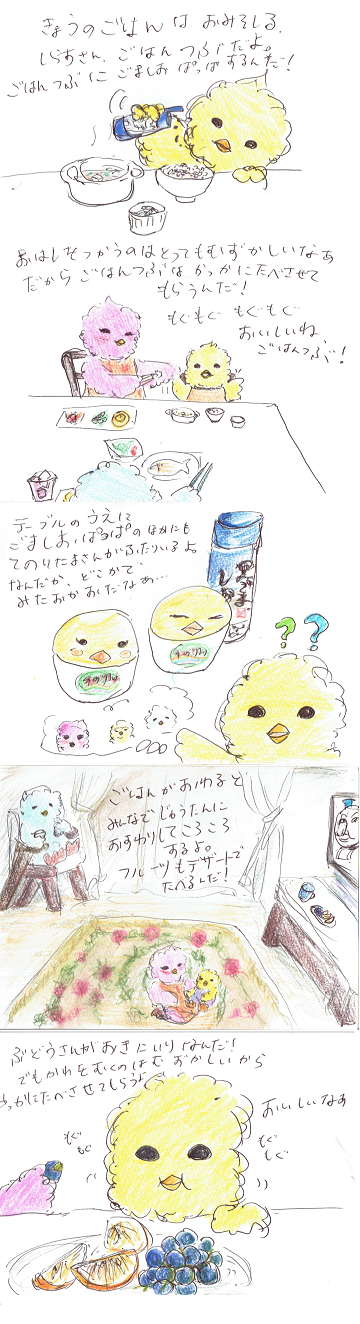 きょうのごはんは おみそしる、
しらすさん、ごはんつぶだよ。
ごはんつぶに ごましお ぱっぱするんだ!
おはしをつかうのはとってもむずかしいなあ
だから ごはんつぶは かっかにたべさせて
もらうんだ!
もぐもぐ もぐもぐ
おいしいね
ごはんつぶ!
テーブルのうえに
ごましおぱっぱのほかにも
てのりたまさんがふたりいるよ
なんだか、どこかで
みたおかおだなあ…
てのりたま
てのりたま
ごましお
? ?
ごはんがおわると
みんなでじゅうたんに
おすわりしてころころ
するよ。
フルーツもデザートで
たべるんだ!
ぶどうさんがおきにいりなんだ!
でもかわをむくのはむずかしいから
かっかにたべさせてもらうよ
おいしいなあ
もぐ
もぐ
もぐ
もぐ